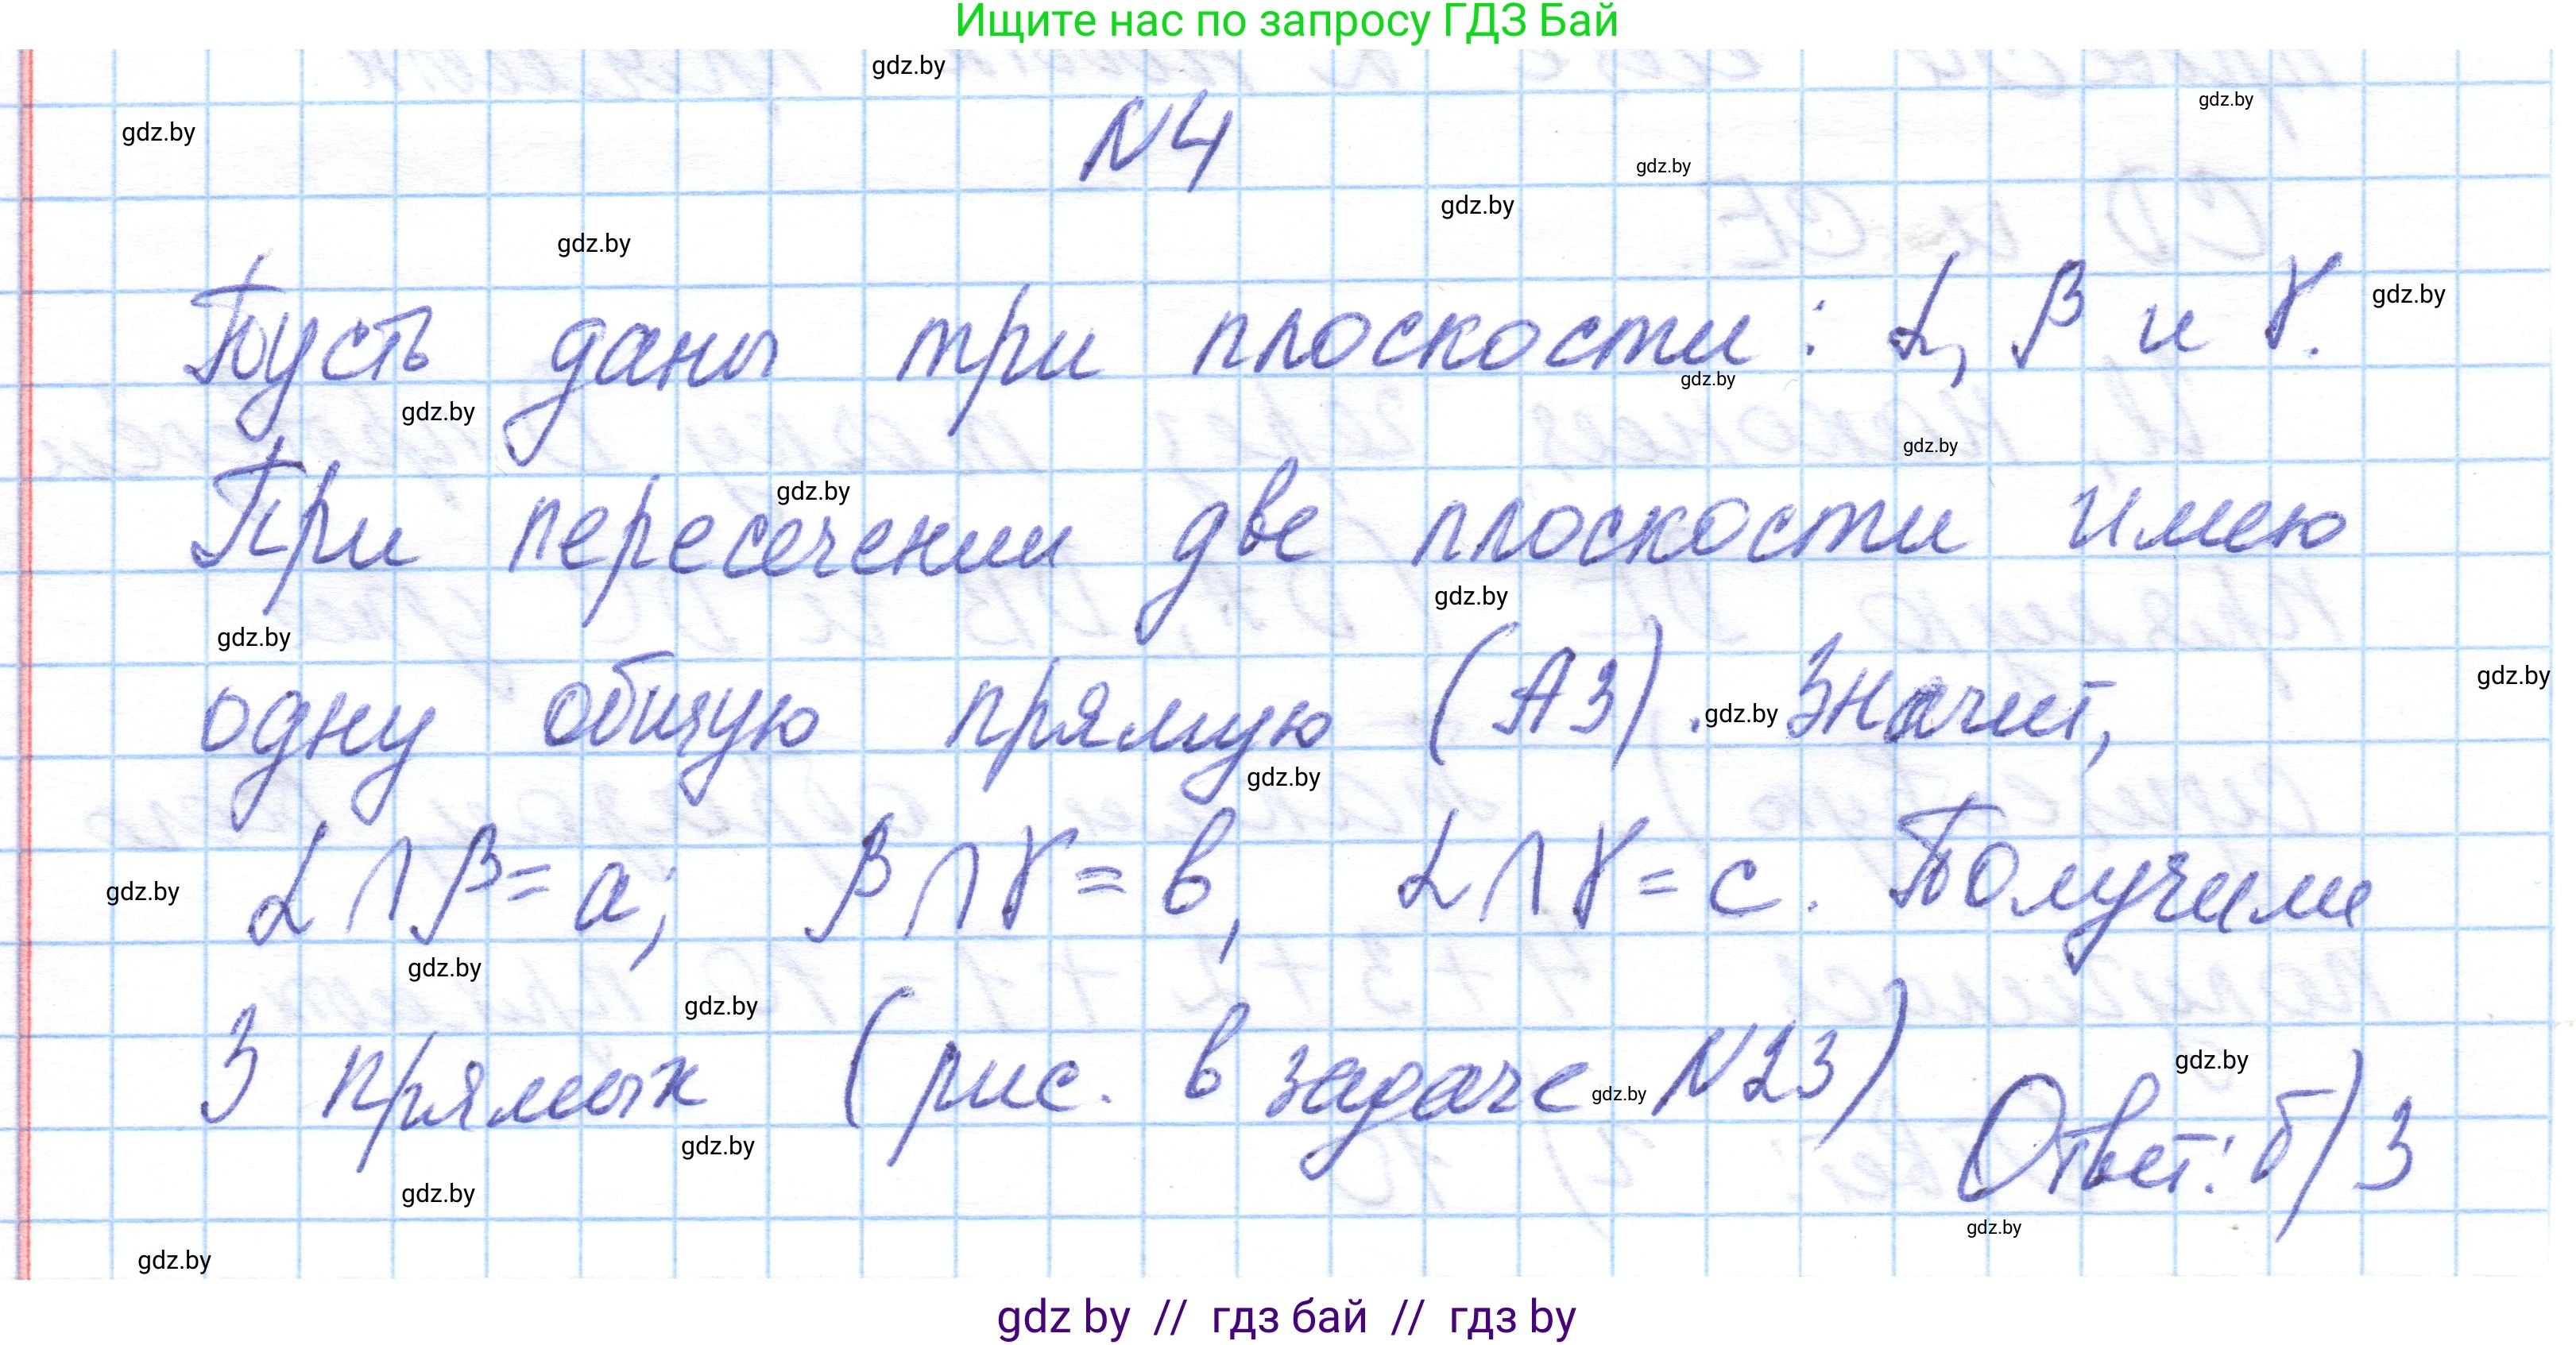 Ищите нас по запросу ГДЗ Бай
gdz.by
gdz.by
gdz.by
N4
gdz.by
gdz.by
gdz.by
Пусть даны три плоскости: α, β и γ.
gdz.by
gdz.by
gdz.by
gdz.by
При пересечении две плоскости имею
gdz.by
gdz.by
gdz.by
одну общую прямую (А3). Значит,
gdz.by
gdz.by
gdz.by
α∩β=a; β∩γ=в, α∩γ=c. Получили
gdz.by
gdz.by
gdz.by
3 прямых (рис. в задаче N23)
gdz.by
gdz.by
Ответ: б) 3
gdz.by
gdz.by
gdz.by
gdz.by
gdz by // гдз бай // гдз by